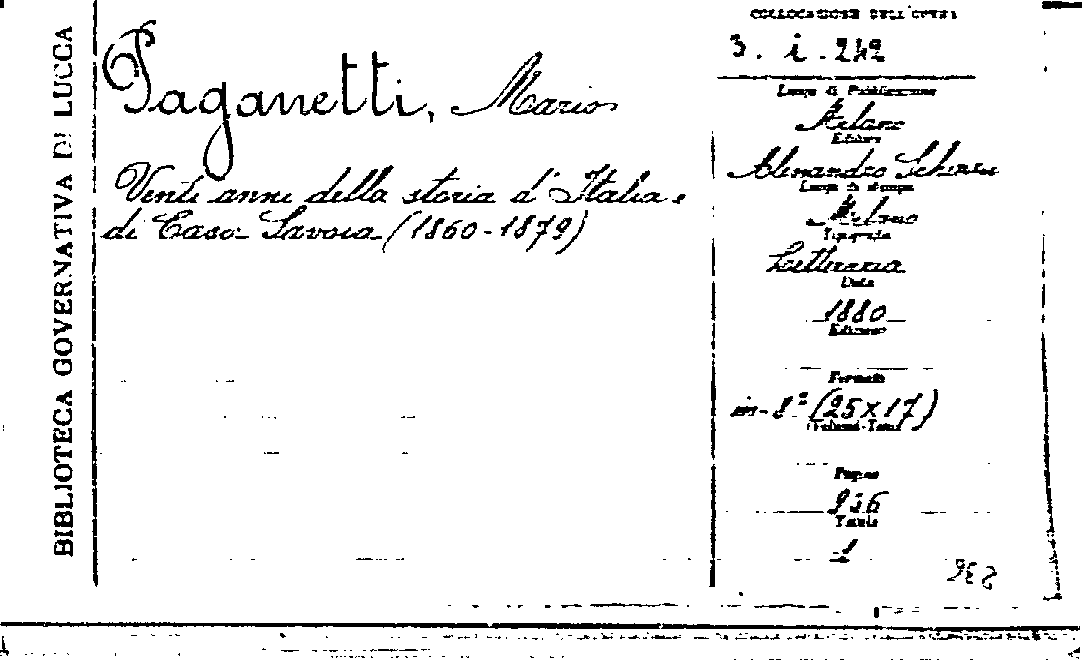 BIBLIOTECA GOVERNATIVA DI LUCCA
Paganetti, Mario
Venti anni della storia d'Italia e
di Casa Savoia (1860-1879)
COLLOCAZIONE DELL'OPERA
3. i. 242
Luogo di Pubblicazione
Milano
Editore
Alessandro
Luogo di stampa
Milano
Tipografia
Letteraria
Data
1880
Edizione
Formato
in-8º (25x17)
Pagine
Tavole
1